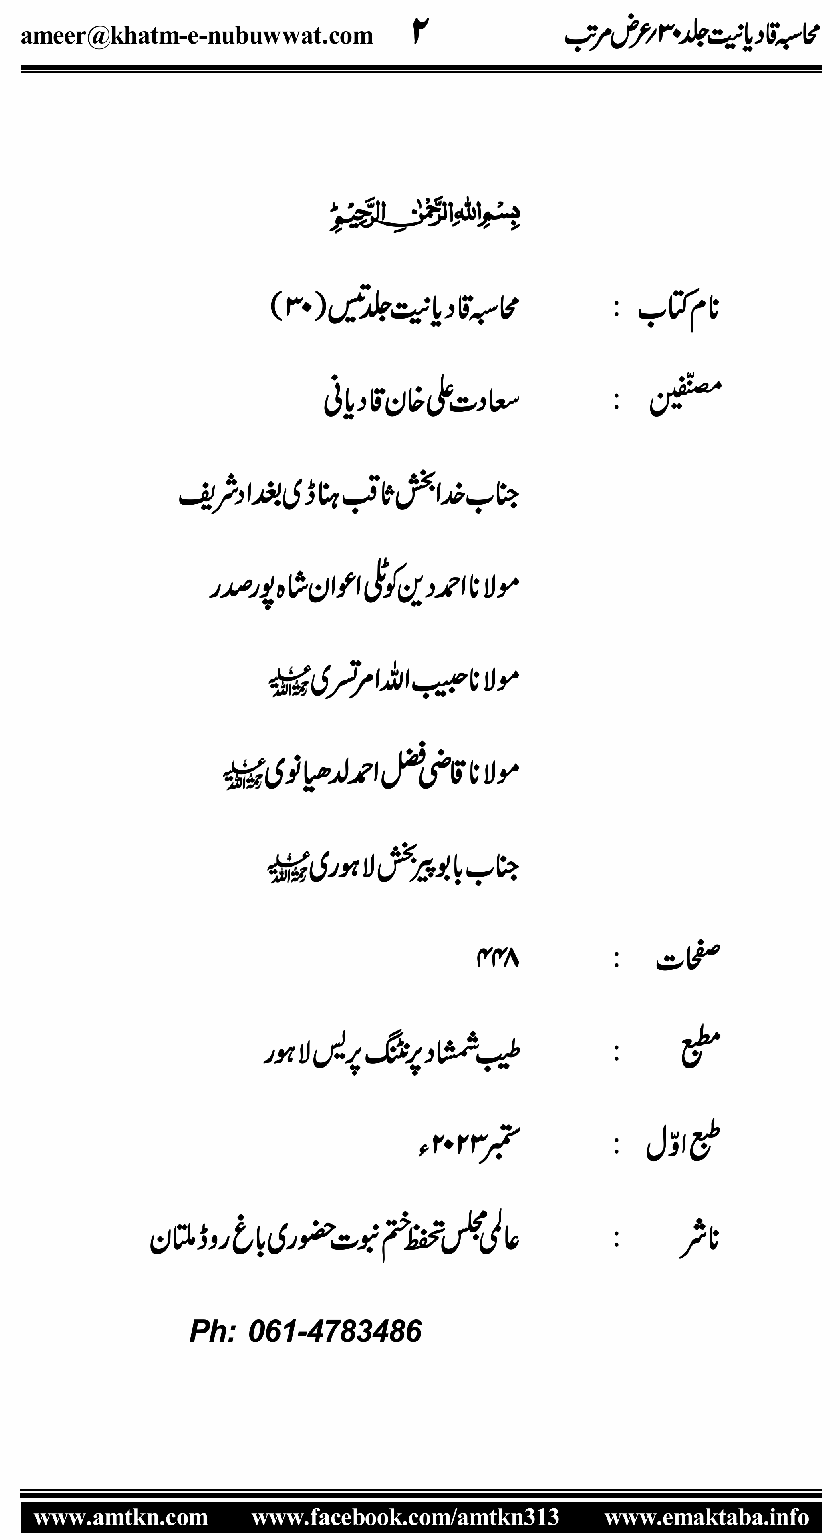 محاسبہ قادیانیت جلد ۳۰؍عرض مرتب ۲ ameer@khatm-e-nubuwwat.com
بسم اللہ الرحمٰن الرحیم
نام کتاب : محاسبہ قادیانیت جلد تیس (۳۰)
مصنّفین : سعادت علی خان قادیانی
جناب خدا بخش ثاقب ہناڈی بغداد شریف
مولانا احمد دین کوٹلی اعوان شاہ پور صدر
مولانا حبیب اللہ امرتسری رحمۃ اللہ علیہ
مولانا قاضی فضل احمد لدھیانوی رحمۃ اللہ علیہ
جناب بابو پیر بخش لاہوری رحمۃ اللہ علیہ
صفحات : ۴۴۸
مطبع : طیب شمشاد پرنٹنگ پریس لاہور
طبع اوّل : ستمبر ۲۰۲۳ء
ناشر : عالمی مجلس تحفظ ختم نبوت حضوری باغ روڈ ملتان
Ph: 061-4783486
www.amtkn.com www.facebook.com/amtkn313 www.emaktaba.info